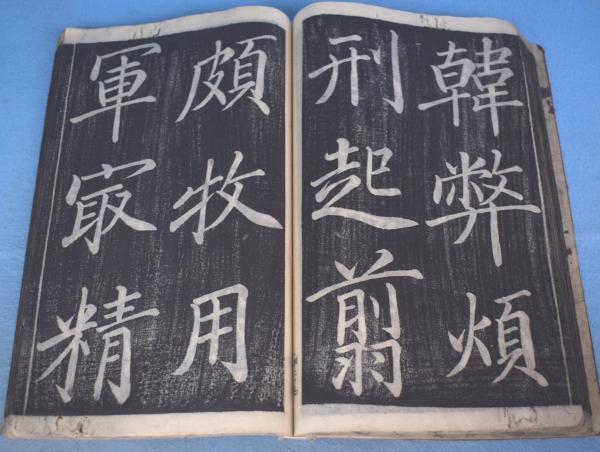 韓弊煩
刑起翦
頗牧用
軍㝡精